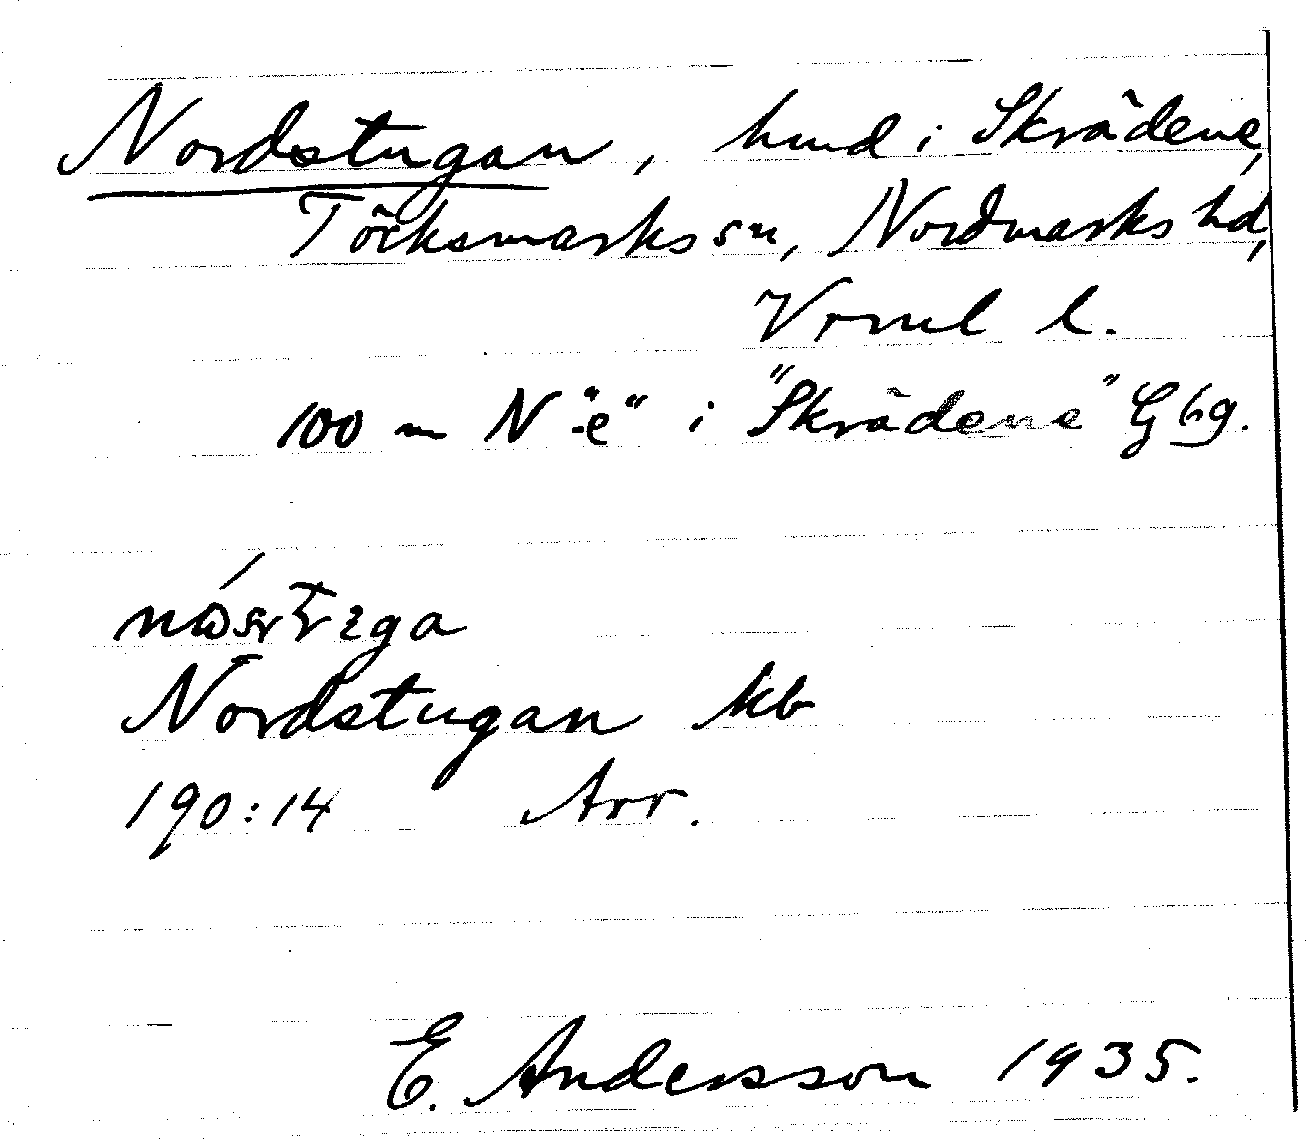 Nordstugan, hmd i Skrädene,
Töcksmarks sn, Nordmarks hd,
Vrml l.
100 m N "-e" i "Skrädene" Gbg.
Nordstugan kb
190:14 Arr.
E. Andersson 1935.